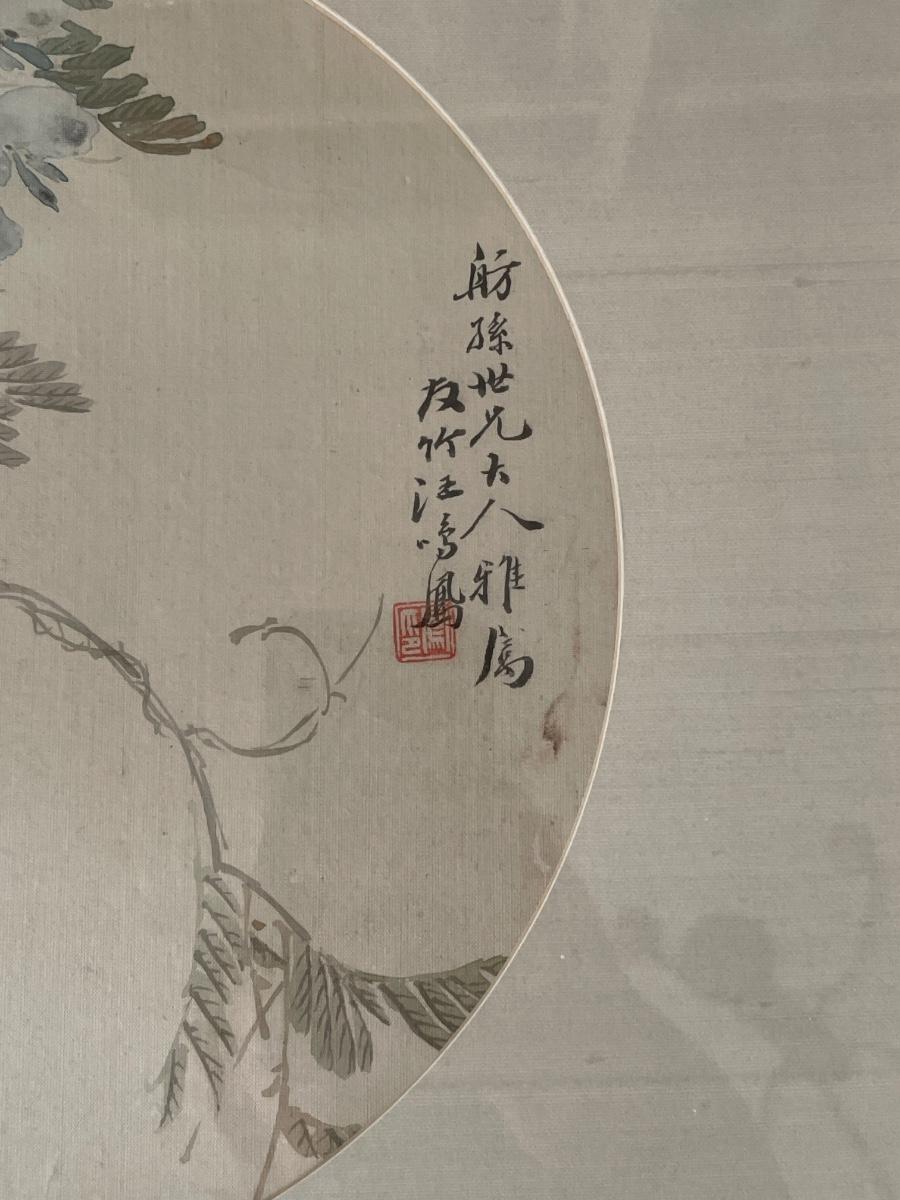 舫孫世兄大人雅屬
友竹汪鳴鳳